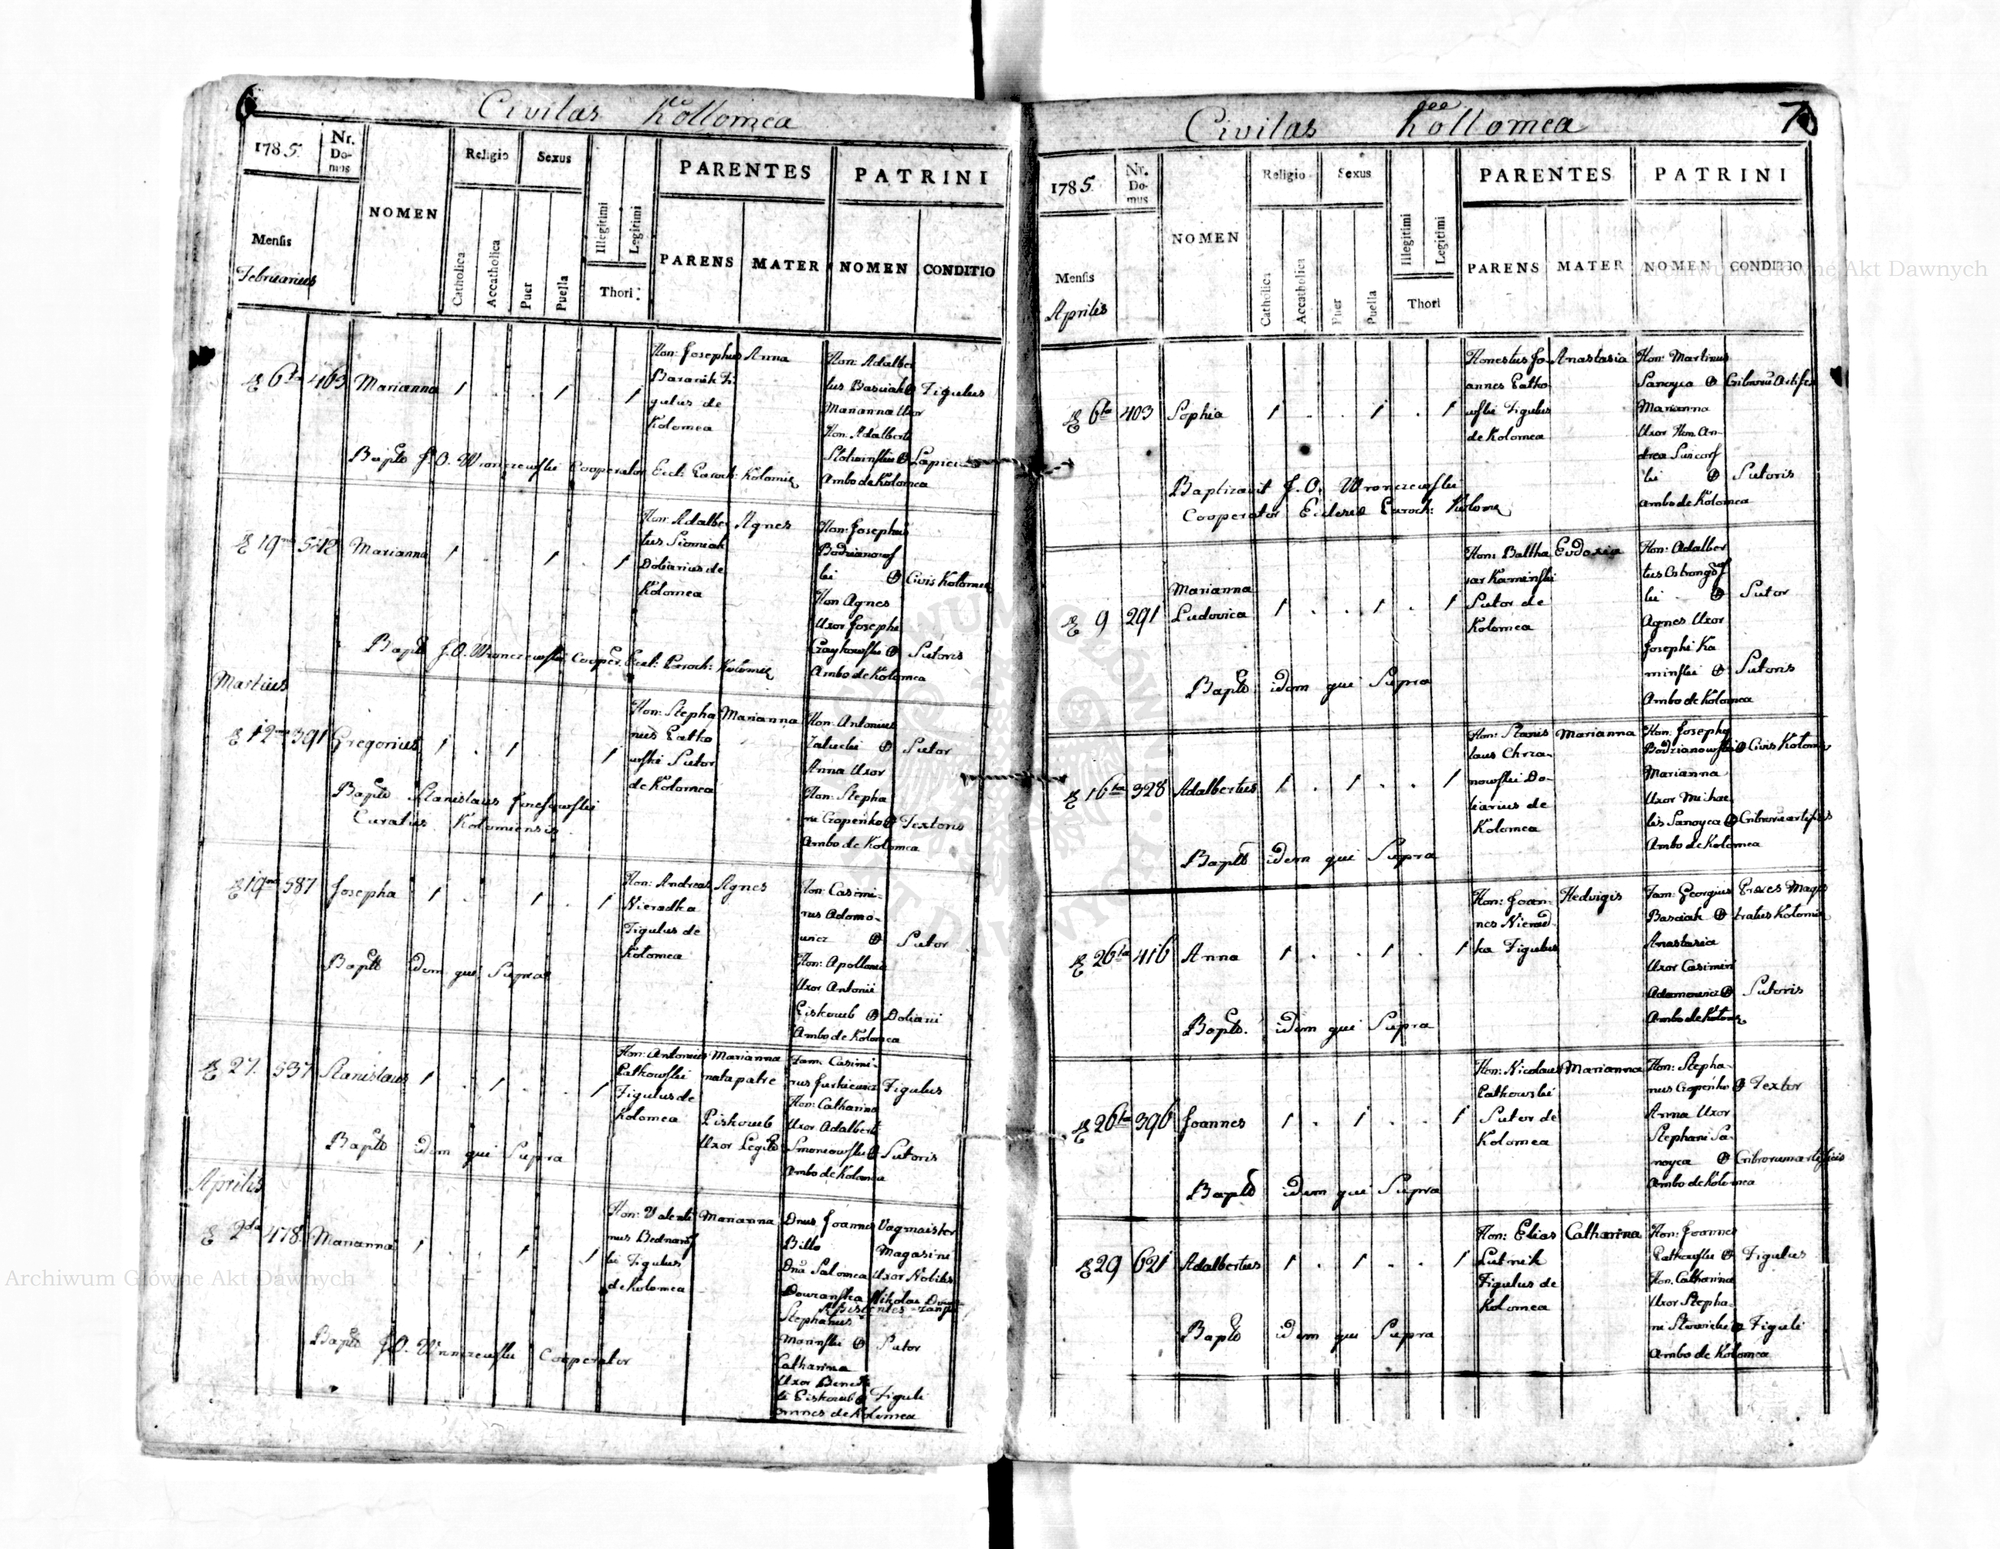 6
Civitas Kollomea
1785.
Nr. Do- mus
NOMEN
Religio
Sexus
Catholica
Accatholica
Puer
Puella
Illegitimi
Legitimi
Thori
PARENTES
PATRINI
PARENS
MATER
NOMEN
CONDITIO
Mensis
Februarius
6ta 463 Marianna 1 . . 1 . 1
Hon: Josephus
Baranik Fi
gulus de
Kolomea
Anna
Hon: Adalber
tus Basiak
Marianna Uxor
Hon: Adalberti
Ambo de Kolomea
Figulus
Bapto J.O. Wronczewski Cooperator Eccl: Paroch: Kolomie
19na 542 Marianna 1 . . 1 . 1
Hon: Adalber
tus Siomiak
Doliarius de
Kolomea
Agnes
Hon: Josephus
Bodzianows
ki
Hon Agnes
Uxor Josephi
Gaykowski
Ambo de Kolomea
Civis Kolomea
Sutoris
Bapto J.O. Wronczewski Cooper. Eccl: Paroch: Kolomie
Martius
12ma 391 Gregorius 1 . 1 . . 1
Hon: Stepha
nus Patko
wski Sutor
de Kolomea
Marianna
Hon: Antonius
Zalucki
Anna Uxor
Hon: Stepha
ni Cropenko
Ambo de Kolomea
Sutor
Textoris
Bapto Stanislaus
Curatus Kolomiensis
19na 587 Josepha 1 . . 1 . 1
Hon: Andreas
Nieradka
Figulus de
Kolomea
Agnes
Hon: Casimi-
rus Adamo-
wicz
Hon: Apollonia
Uxor Antonii
Piskozub
Ambo de Kolomea
Sutor
Doliarii
Bapto idem qui Supra
27. 537 Stanislaus 1 . 1 . . 1
Hon: Antonius
Patkowski
Figulus de
Kolomea
Marianna
nata patre
Piskozub
Uxor Legit
Fam: Casimi-
rus Jurkiewicz
Hon: Catharina
Uxor Adalberti
Ambo de Kolomea
Figulus
Sutoris
Bapto idem qui Supra
Aprilis
2da 478 Marianna 1 . . 1 . 1
Hon: Valenti
nus Bednars
ki Figulus
de Kolomea
Marianna
Dnus Joannes
Billo
Dna Salomea
Stephanus
Marinski
Catharina
Uxor Benedi
ti Piskozub
omnes de Kolomea
Vagmaister
Magasini
Uxor Nobilis
Assistentes
Sutor
Figuli
Bapto J.O. Wronczewski Cooperator
7
Civitas Kollomea
1785.
Nr. Do- mus
NOMEN
Religio
Sexus
Catholica
Accatholica
Puer
Puella
Illegitimi
Legitimi
Thori
PARENTES
PATRINI
PARENS
MATER
NOMEN
CONDITIO
Mensis
Aprilis
6ta 403 Sophia 1 . . 1 . 1
Honestus Jo-
annes Patko
wski Figulus
de Kolomea
Anastasia
Hon: Martinus
Sanoyca
Marianna
Uxor Hon: An-
drea
Ambo de Kolomea
Sutoris
Baptizavit J.O. Wronczewski
Cooperator Ecclesie Paroch: Kolome
9 291 Marianna
Ludovica 1 . . 1 . 1
Hon: Baltha
zar Kaminski
Sutor de
Kolomea
Eudoxia
Hon: Adalber
tus Ostrongs
ki
Agnes Uxor
Josephi Ka
minski
Ambo de Kolomea
Sutor
Sutoris
Bapto idem qui Supra
16ta 328 Adalbertus 1 . 1 . . 1
Hon: Stanis
laus Chrza-
nowski Do-
liarius de
Kolomea
Marianna
Hon: Josephus
Bodzianowski
Marianna
Uxor Michae
lis Sanoyca
Ambo de Kolomea
Civis Kolomie
Bapto idem qui Supra
26ta 416 Anna 1 . . 1 . 1
Hon: Joan-
nes Nierad
ka Figulus
Hedvigis
Fam: Georgius
Basiak
Anastasia
Uxor Casimiri
Adamowicz
Ambo de Kolome
Sutoris
Bapto. idem qui Supra
26ta 396 Joannes 1 . 1 . . 1
Hon: Nicolaus
Patkowski
Sutor de
Kolomea
Marianna
Hon: Stepha-
nus Cropenko
Anna Uxor
Stephani Sa-
noyca
Ambo de Kolomea
Textor
Bapto idem qui Supra
29 621 Adalbertus 1 . 1 . . 1
Hon: Elias
Lutnik
Figulus de
Kolomea
Catharina
Hon: Joannes
Patkowski
Hon. Catharina
Uxor Stepha-
ni
Ambo de Kolomea
Figulus
Figuli
Bapto idem qui Supra
Archiwum Główne Akt Dawnych
Archiwum Główne Akt Dawnych